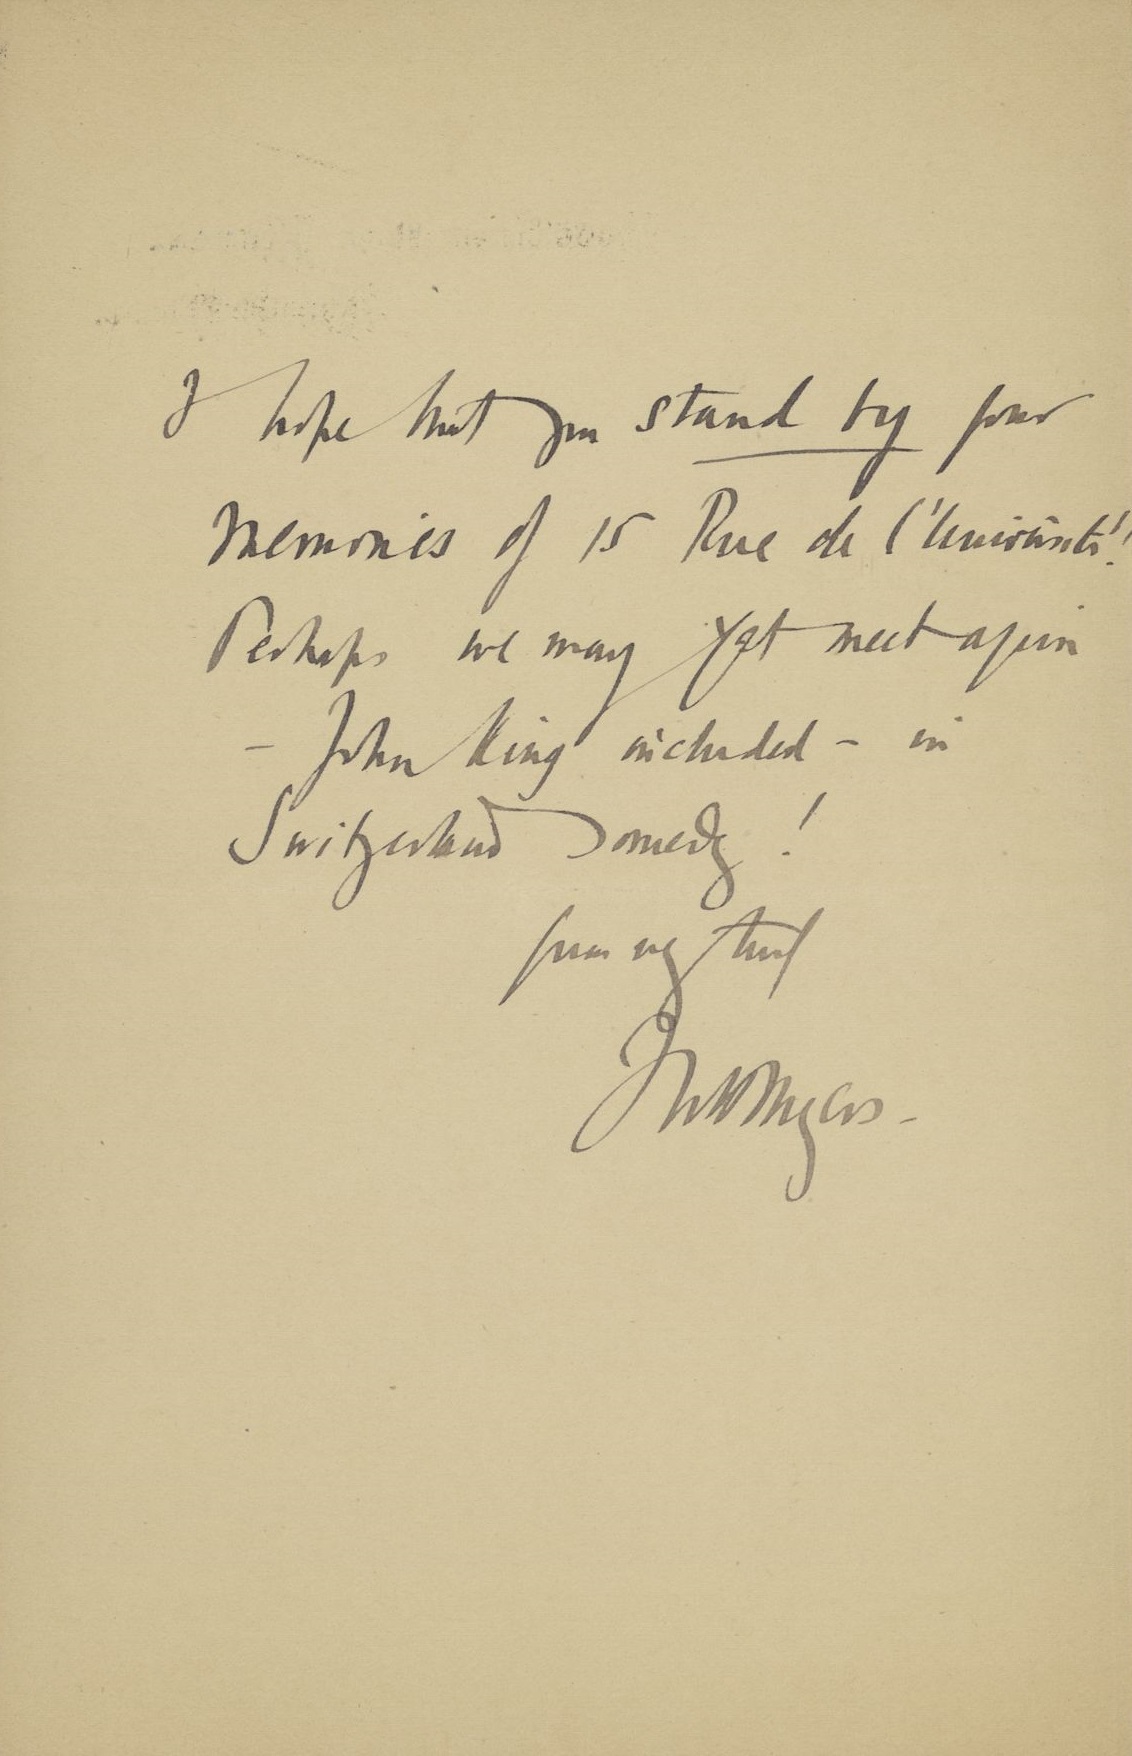 I hope that you stand by your
memories of 15 Rue de l'Université!
Perhaps we may yet meet again
- John King included - in
Switzerland someday!
yours very truly
F W H Myers -